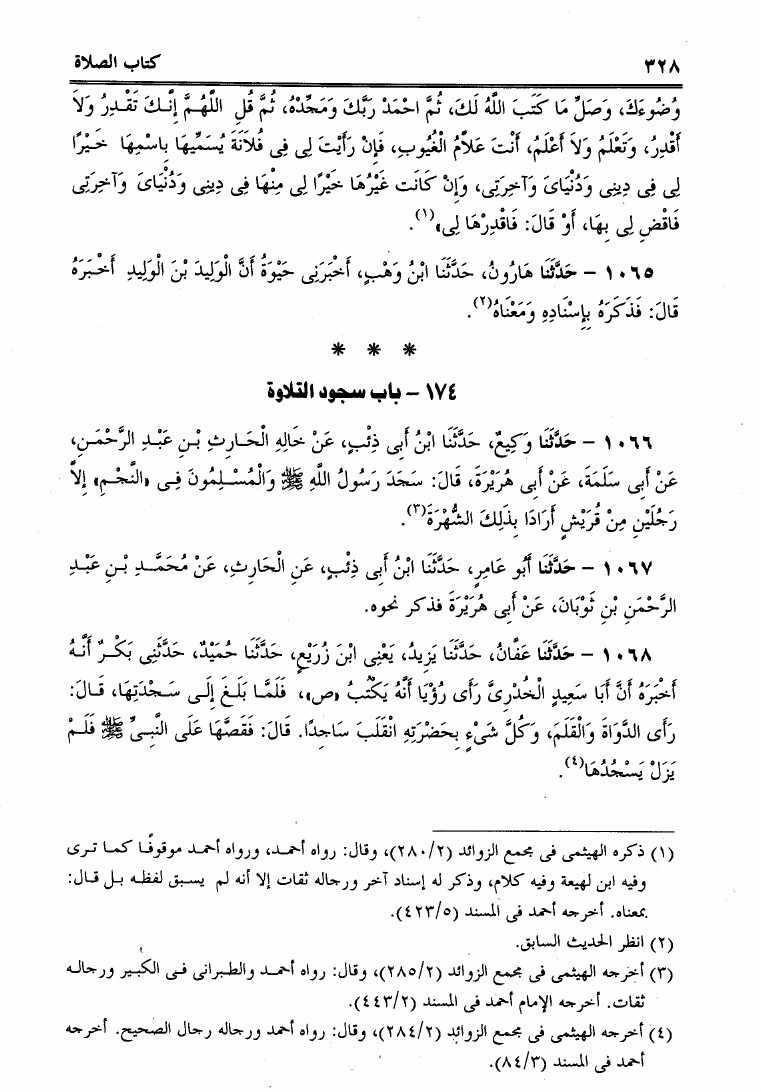 ٣٢٨ كتاب الصلاة
وُضُوءَكَ، وَصَلِّ مَا كَتَبَ اللَّهُ لَكَ، ثُمَّ احْمَدْ رَبَّكَ وَمَجِّدْهُ، ثُمَّ قُلِ اللَّهُمَّ إِنَّكَ تَقْدِرُ وَلاَ
أَقْدِرُ، وَتَعْلَمُ وَلاَ أَعْلَمُ، أَنْتَ عَلاَّمُ الْغُيُوبِ، فَإِنْ رَأَيْتَ لِى فِى فُلاَنَةَ يُسَمِّيهَا بِاسْمِهَا خَيْرًا
لِى فِى دِينِى وَدُنْيَاىَ وَآخِرَتِى، وَإِنْ كَانَت غَيْرُهَا خَيْرًا لِى مِنْهَا فِى دِينِى وَدُنْيَاىَ وَآخِرَتِى
فَاقْضِ لِى بِهَا، أَوْ قَالَ: فَاقْدِرْهَا لِى»(١).
١٠٦٥ – حَدَّثَنَا هَارُونُ، حَدَّثَنَا ابْنُ وَهْبٍ، أَخْبَرَنِى حَيْوَةُ أَنَّ الْوَلِيدَ بْنَ الْوَلِيدِ أَخْبَرَهُ
قَالَ: فَذَكَرَهُ بِإِسْنَادِهِ وَمَعْنَاهُ(٢).
* * *
١٧٤ – باب سجود التلاوة
١٠٦٦ – حَدَّثَنَا وَكِيعٌ، حَدَّثَنَا ابْنُ أَبِى ذِئْبٍ، عَنْ خَالِهِ الْحَارِثِ بْنِ عَبْدِ الرَّحْمَنِ،
عَنْ أَبِى سَلَمَةَ، عَنْ أَبِى هُرَيْرَةَ، قَالَ: سَجَدَ رَسُولُ اللَّهِ ﷺ وَالْمُسْلِمُونَ فِى «النَّجْمِ» إِلاَّ
رَجُلَيْنِ مِنْ قُرَيْشٍ أَرَادَا بِذَلِكَ الشُّهْرَةَ(٣).
١٠٦٧ – حَدَّثَنَا أَبُو عَامِرٍ، حَدَّثَنَا ابْنُ أَبِى ذِئْبٍ، عَنِ الْحَارِثِ، عَنْ مُحَمَّدِ بْنِ عَبْدِ
الرَّحْمَنِ بْنِ ثَوْبَانَ، عَنْ أَبِى هُرَيْرَةَ فذكر نحوه.
١٠٦٨ – حَدَّثَنَا عَفَّانُ، حَدَّثَنَا يَزِيدُ، يَعْنِى ابْنَ زُرَيْعٍ، حَدَّثَنَا حُمَيْدٌ، حَدَّثَنِى بَكْرٌ أَنَّهُ
أَخْبَرَهُ أَنَّ أَبَا سَعِيدٍ الْخُدْرِىَّ رَأَى رُؤْيَا أَنَّهُ يَكْتُبُ «ص»، فَلَمَّا بَلَغَ إِلَى سَجْدَتِهَا، قَالَ:
رَأَى الدَّوَاةَ وَالْقَلَمَ، وَكُلَّ شَىْءٍ بِحَضْرَتِهِ انْقَلَبَ سَاجِدًا. قَالَ: فَقَصَّهَا عَلَى النَّبِىِّ ﷺ فَلَمْ
يَزَلْ يَسْجُدُهَا(٤).
(١) ذكره الهيثمى فى مجمع الزوائد (٢٨٠/٢)، وقال: رواه أحمد، ورواه أحمد موقوفًا كما ترى
وفيه ابن لهيعة وفيه كلام، وذكر له إسناد آخر ورجاله ثقات إلا أنه لم يسبق لفظه بل قال:
بمعناه. أخرجه أحمد فى المسند (٤٢٣/٥).
(٢) انظر الحديث السابق.
(٣) أخرجه الهيثمى فى مجمع الزوائد (٢٨٥/٢)، وقال: رواه أحمد والطبرانى فى الكبير ورجاله
ثقات. أخرجه الإمام أحمد فى المسند (٤٤٣/٢).
(٤) أخرجه الهيثمى فى مجمع الزوائد (٢٨٤/٢)، وقال: رواه أحمد ورجاله رجال الصحيح. أخرجه
أحمد فى المسند (٨٤/٣).